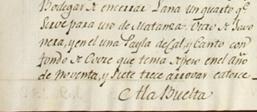 Bodegar o encerrar Jana un quarto q.e
Sirve para uso de Matanza. Otro de Javo
nera, y en el una Payla de Cal, y Canto con
fondo de Cobre que tenia xpero en el año
de noventa, y siete trece arrovas catorce
A la Buelta